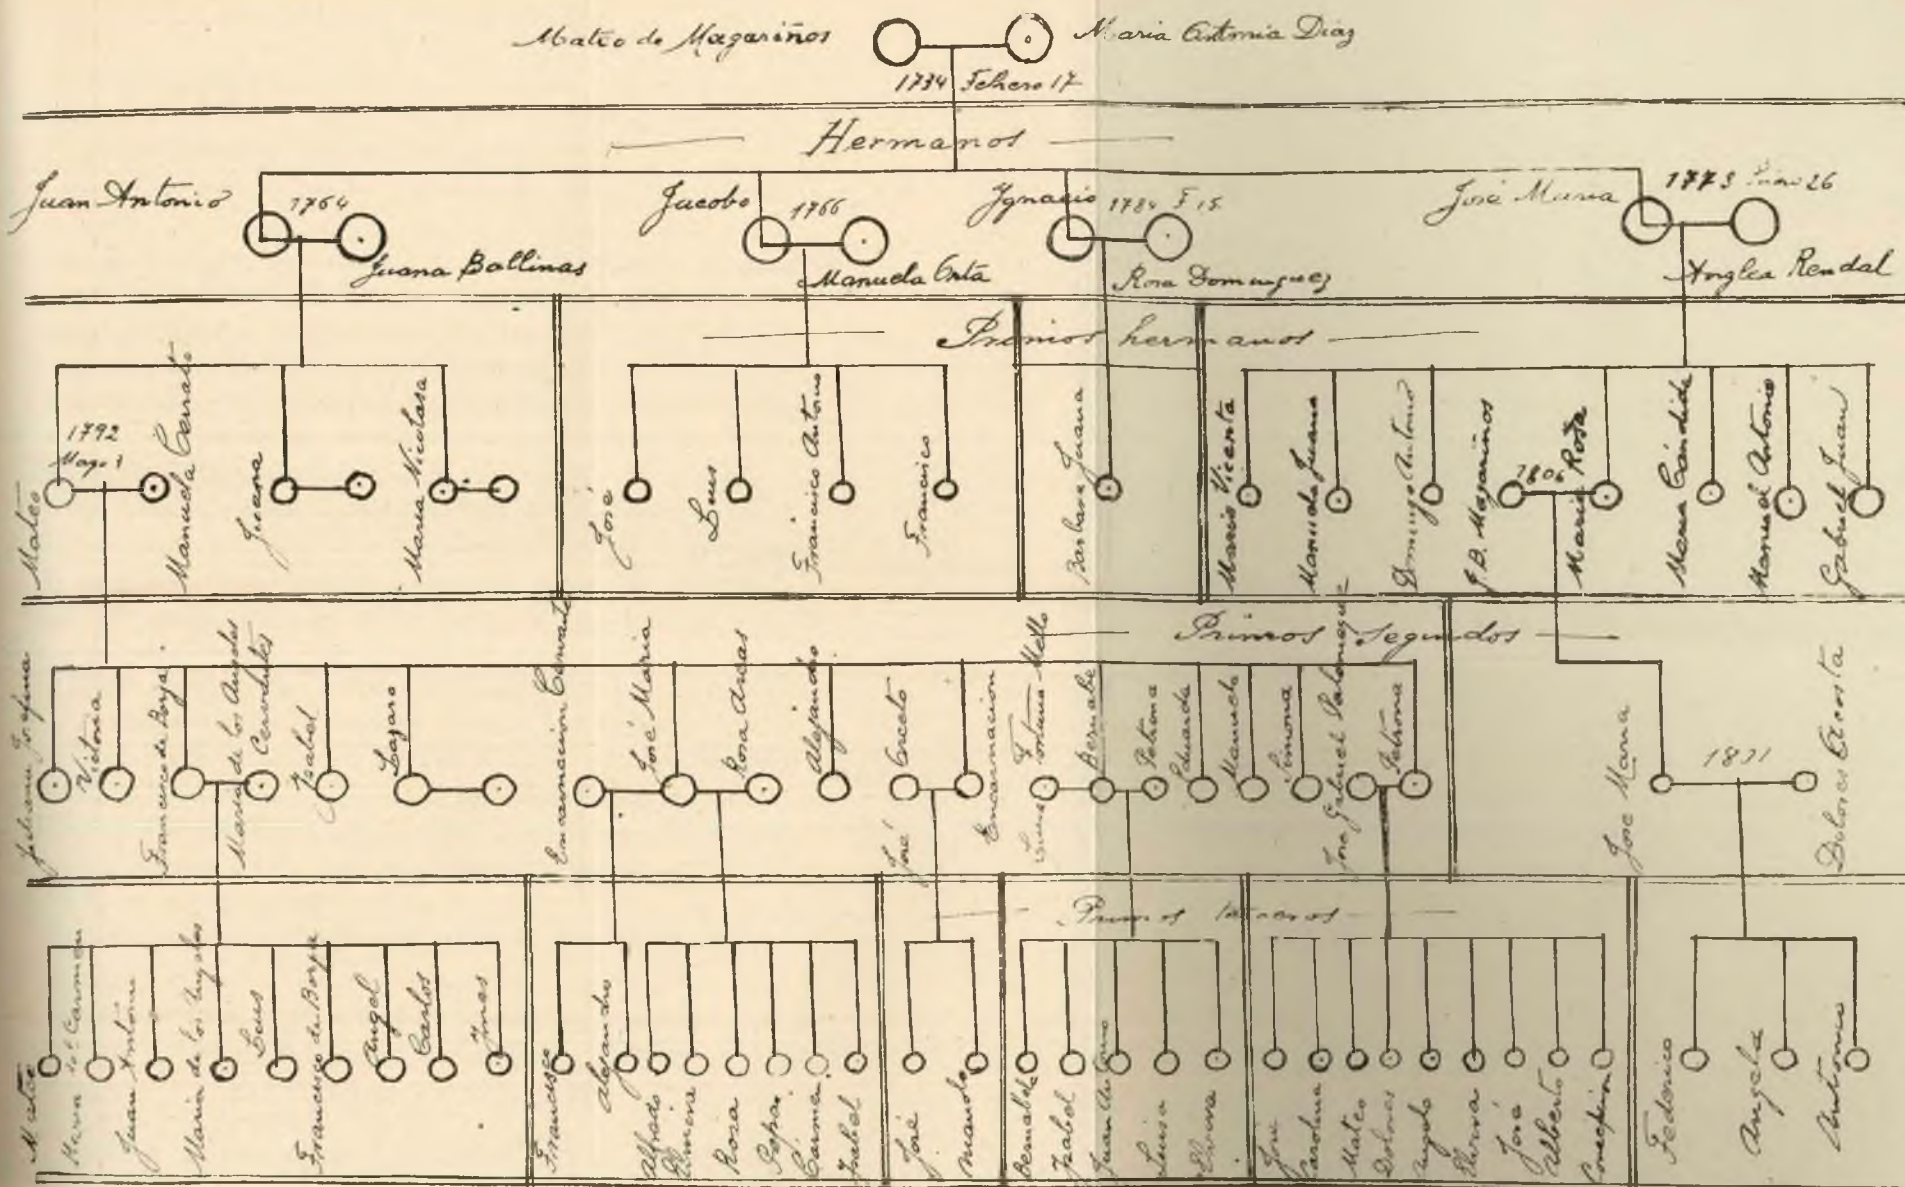 Mateo de Magariños
Maria Antonia Diaz
1734 Febrero 17
Hermanos
Juan Antonio
1764
Juana Ballinas
Jacobo
1766
Manuela
Ygnacio
1784 F 15
Rosa Dominguez
José Maria
1773 26
Anglea Rendal
Primos hermanos
Mateo
1792
Manuela Cerrato
Maria Nicolasa
José
Luis
Francisco Antonio
Francisco
Barbara Juana
Maria Vicenta
Manuela Juana
Domingo Antonio
J.B. Magariños
1806
Maria Rosa
Maria Cándida
Manuel Antonio
Gabriel Juan
Primos Segundos
Josefina
Victoria
Francisco de Borja
Maria de los Angeles
Cervantes
Isabel
Lazaro
Encarnacion
José Maria
Rosa
Alejandro
José
Encarnacion
Mello
Bernabe
Petrona
Eduarda
Manuela
Simona
José Gabriel
Petrona
José Maria
1831
Dolores Acosta
Primos
Mateo
Maria del Carmen
Juan Antonio
Maria de los Angeles
Luis
Francisco de Borja
Angel
Carlos
Ynes
Francisco
Alejandro
Alfredo
Elmira
Rosa
Pepa
Carmen
Isabel
José
Manolo
Bernabela
Isabel
Juan Antonio
Luisa
Elvira
José
Carolina
Mateo
Dolores
Angela
Elvira
José
Alberto
Concepción
Federico
Angela
Antonio